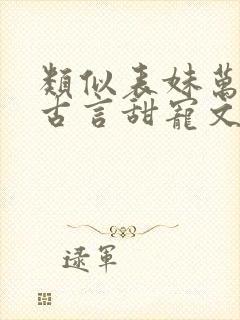 類似表妹萬
古言甜寵文
逯軍